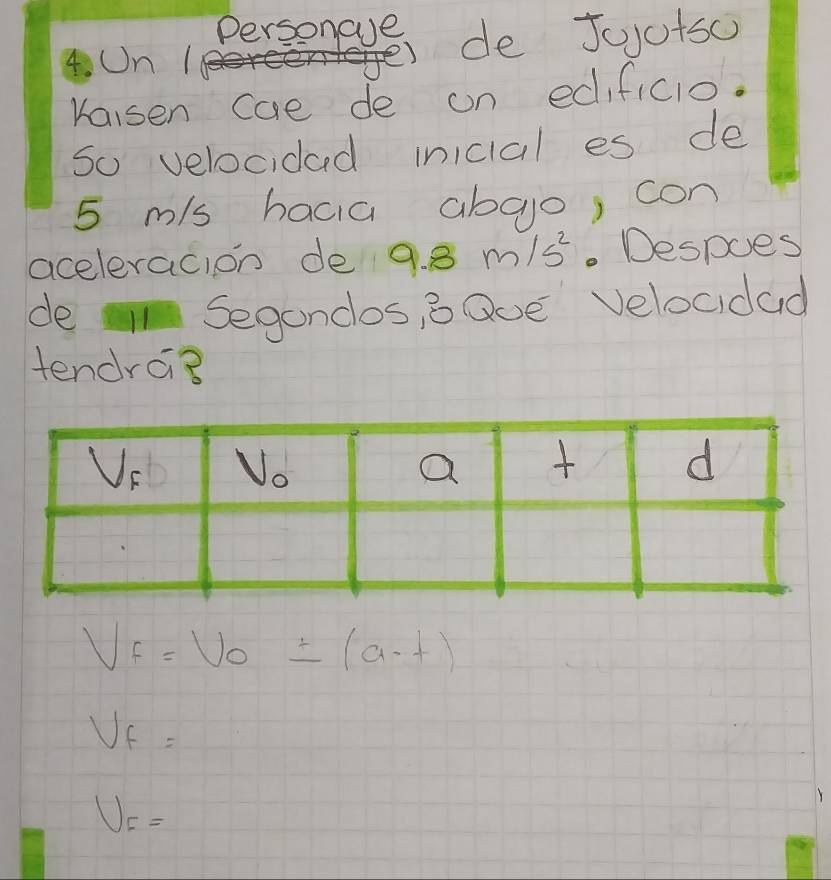 Personaje
4. Un (porcentaje) de Jujutso
Kaisen cae de un edificio.
Su velocidad inicial es de
5 m/s hacia abajo, con
aceleración de 9.8 m/s². Despues
de 11 segundos, ¿Qué velocidad
tendrá?
VF Vo a t d
VF = Vo ± (a·t)
VF =
VF =